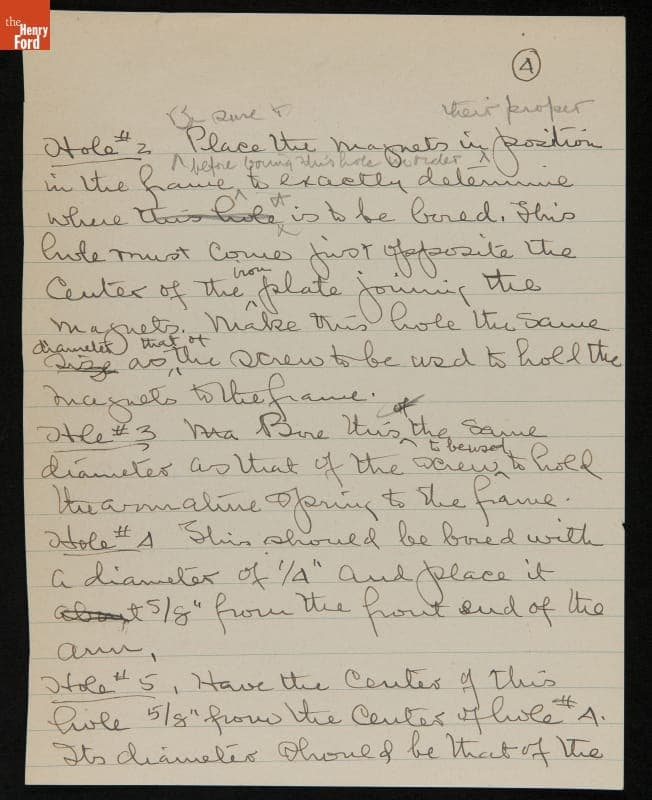 the
Henry
Ford
4
Be sure & their proper
Hole #2 Place the magnets in position
before boring this hole in order
in the frame to exactly determine
where this hole it is to be bored. This
hole must come just opposite the
iron
Center of the plate joining the
magnets. Make this hole the same
diameter that of
size as the screw to be used to hold the
magnets to the frame.
of
Hole #3 Ma Bore this the same
to be used
diameter as that of the screw to hold
the armature spring to the frame.
Hole #4 This should be bored with
a diameter of 1/4" and place it
about 5/8" from the front end of the
arm,
Hole #5, Have the Center of this
hole 5/8" from the Center of hole #4.
Its diameter should be that of the